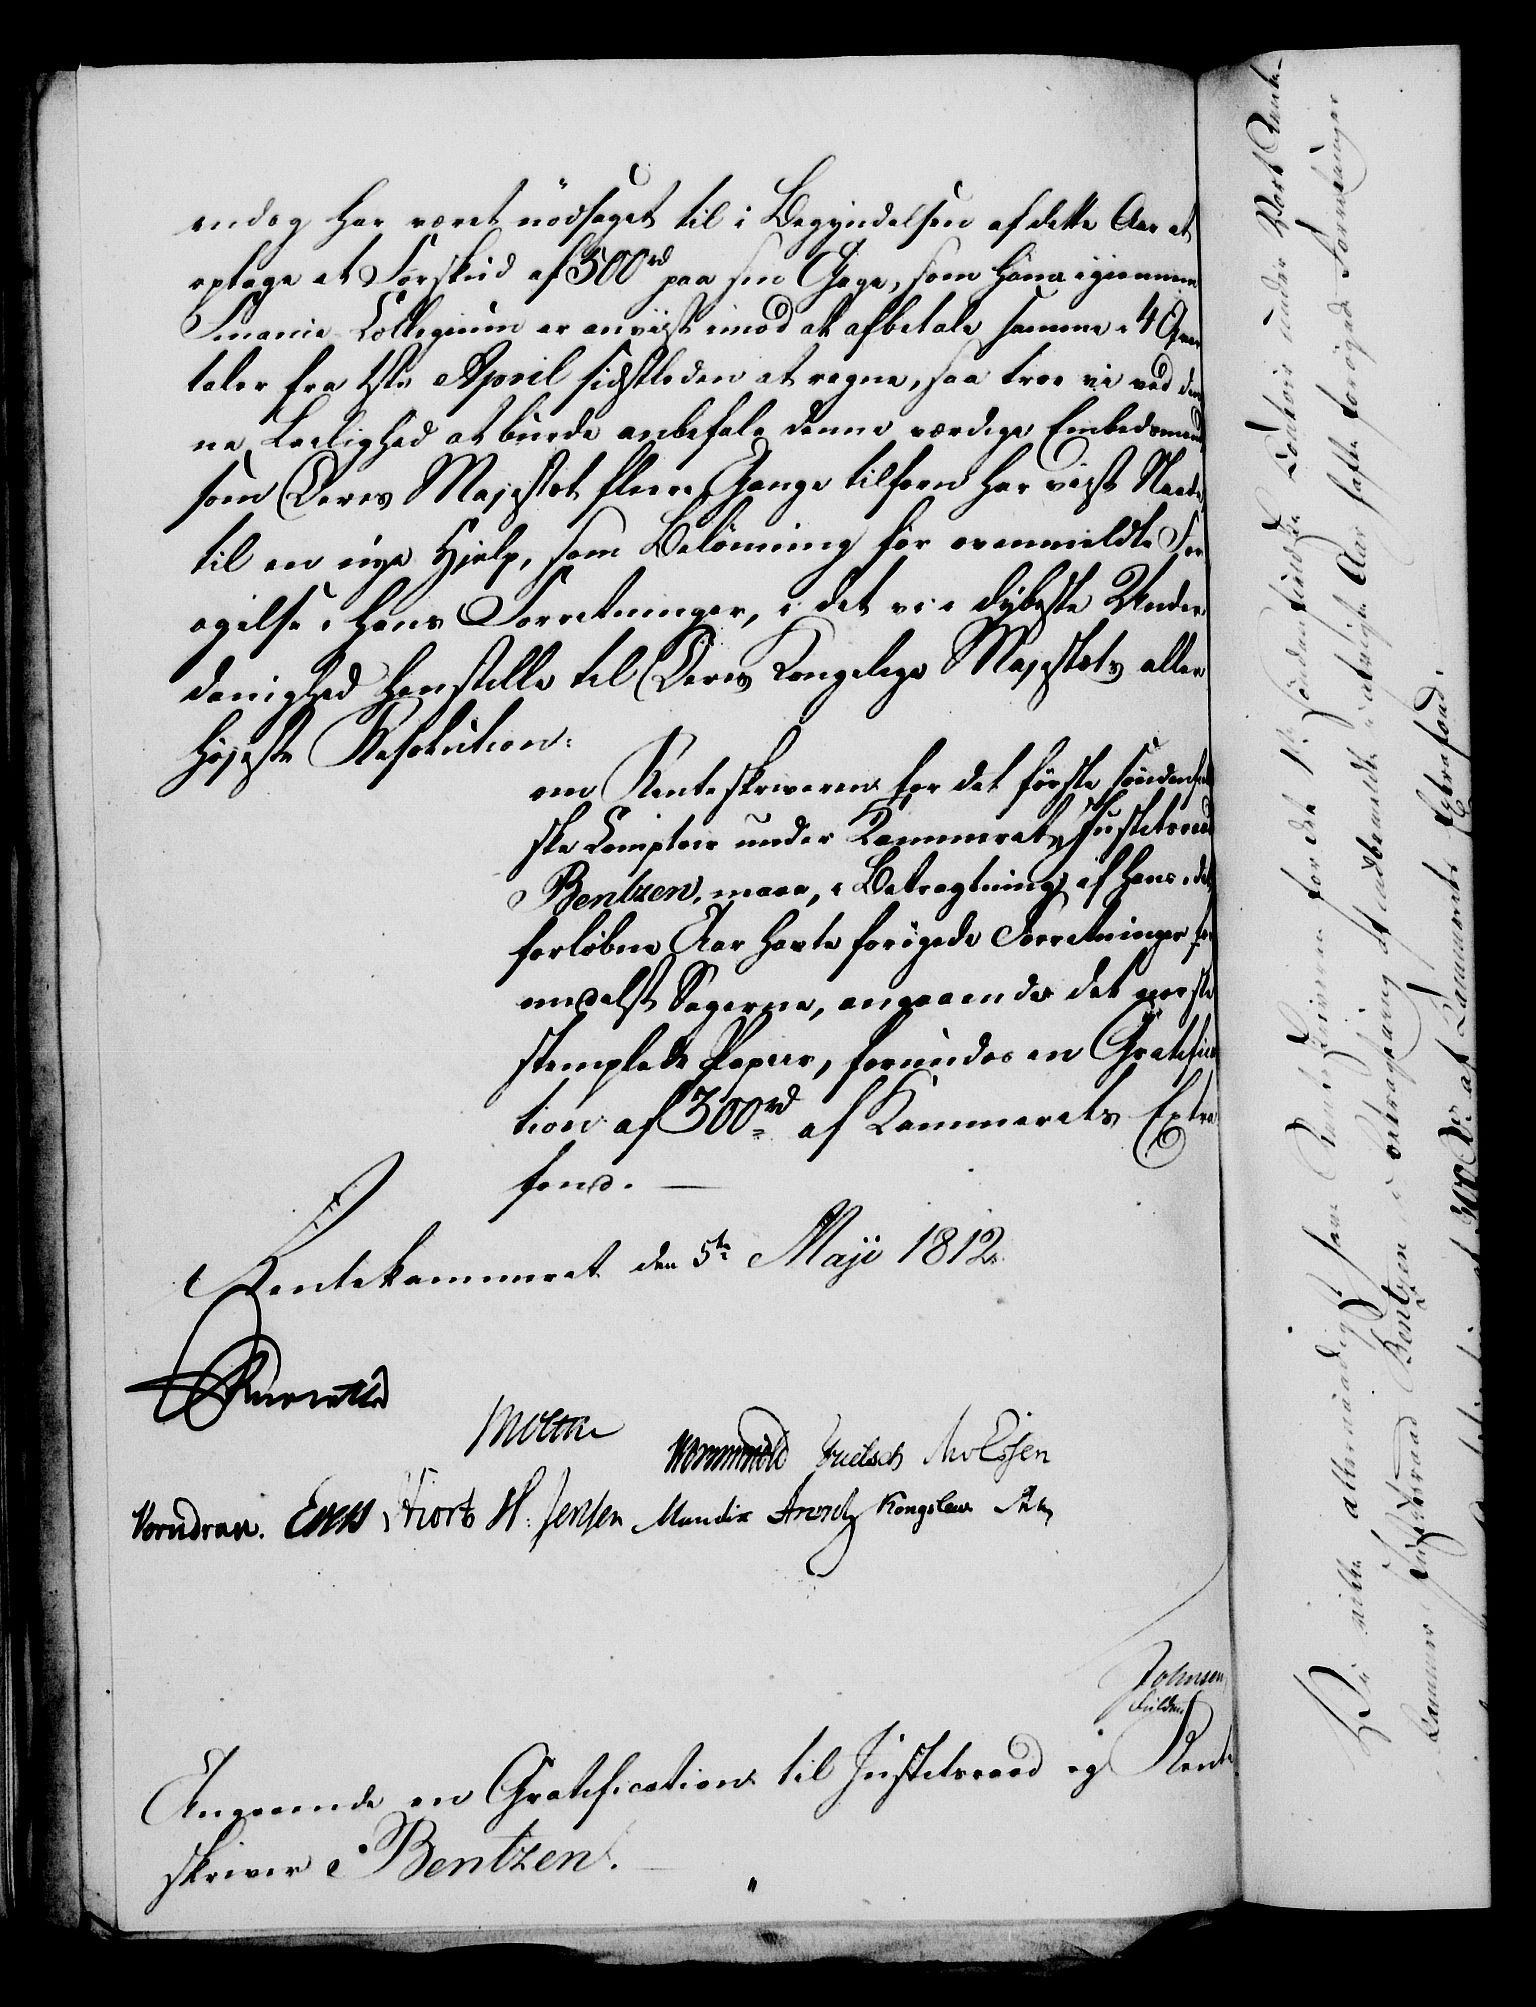 endog har været nödsaget til i Begyndelsen af dette Aar at
optage et Forskud af 500 rd paa sin Gage, som ham igiennem
Finants Collegium er anviist imod at afbetale samme i 4 Qvar
taler fra 1ste April sidstleden at regne, saa troe vi ved den
ne Leilighed at burde anbefale denne værdige Embedsmand
som Deres Majestæt flere Gange tilforn har viist Naade,
til en nye Hjelp, som Belönning for ovenmeldte For
ögelse i hans Forretninger, i det vi i dybeste Under
danighed henstille til Deres Kongelige Majestæts aller
höjeste Resolution:
om Renteskriveren for det förste söndenfield
ske Comptoir under Kammeret, Justitsraad
Bentzen, maae, i Betragtning af hans i det
forløbne Aar havte forögede Forretninger for
medelst Sagerne, angaaende det norske
stemplede Papiir, forundes en Gratifica
tion af 300 rd af Kammerets Extra
fond. —
Rentekammeret den 5te Maji 1812.
Moltke
Wormskiold Lütsch
Vorndran. Hiort H: Jensen Mandix Arentz Kongslew
Johnsen
Fuldm
Angaaende en Gratification til Justitsraad og Rente
skriver Bentzen. —
Vi ville allernaadigst, som Renteskriveren for det 1ste söndenfieldske Contoir under Vort Rente-
kammer Justitsraad Bentzen i Betragtning af udbemeldte i afvigte Aar hafte forögede Forretninger
300 Rd af Kammerets Extrafond.